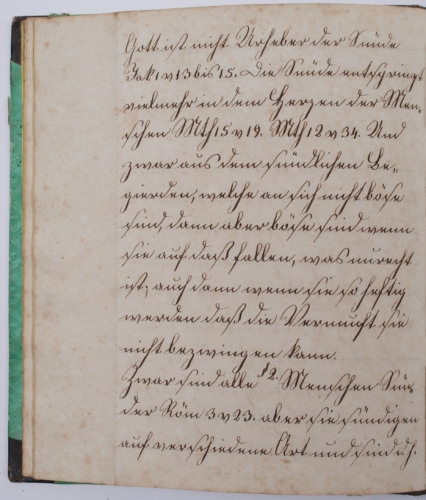 Gott ist nicht Urheber der Sünde
Jak 1 v 13 bis 15. Die Sünde entspringt
vielmehr in dem Herzen der Men-
schen Mth 15 v 19. Mth 12 v 34. Und
zwar aus dem sündlichen Be-
gierden, welche an sich nicht böse
sind, dann aber böse sind wenn
sie auf daß fallen, was unrecht
ist; auch dann wenn sie so heftig
werden daß die Vernunft sie
nicht bezwingen kann.
§ 2.
Zwar sind alle Menschen Sün-
der Röm 3 v 23. aber sie sündigen
auf verschiedene Art und sind d. h.